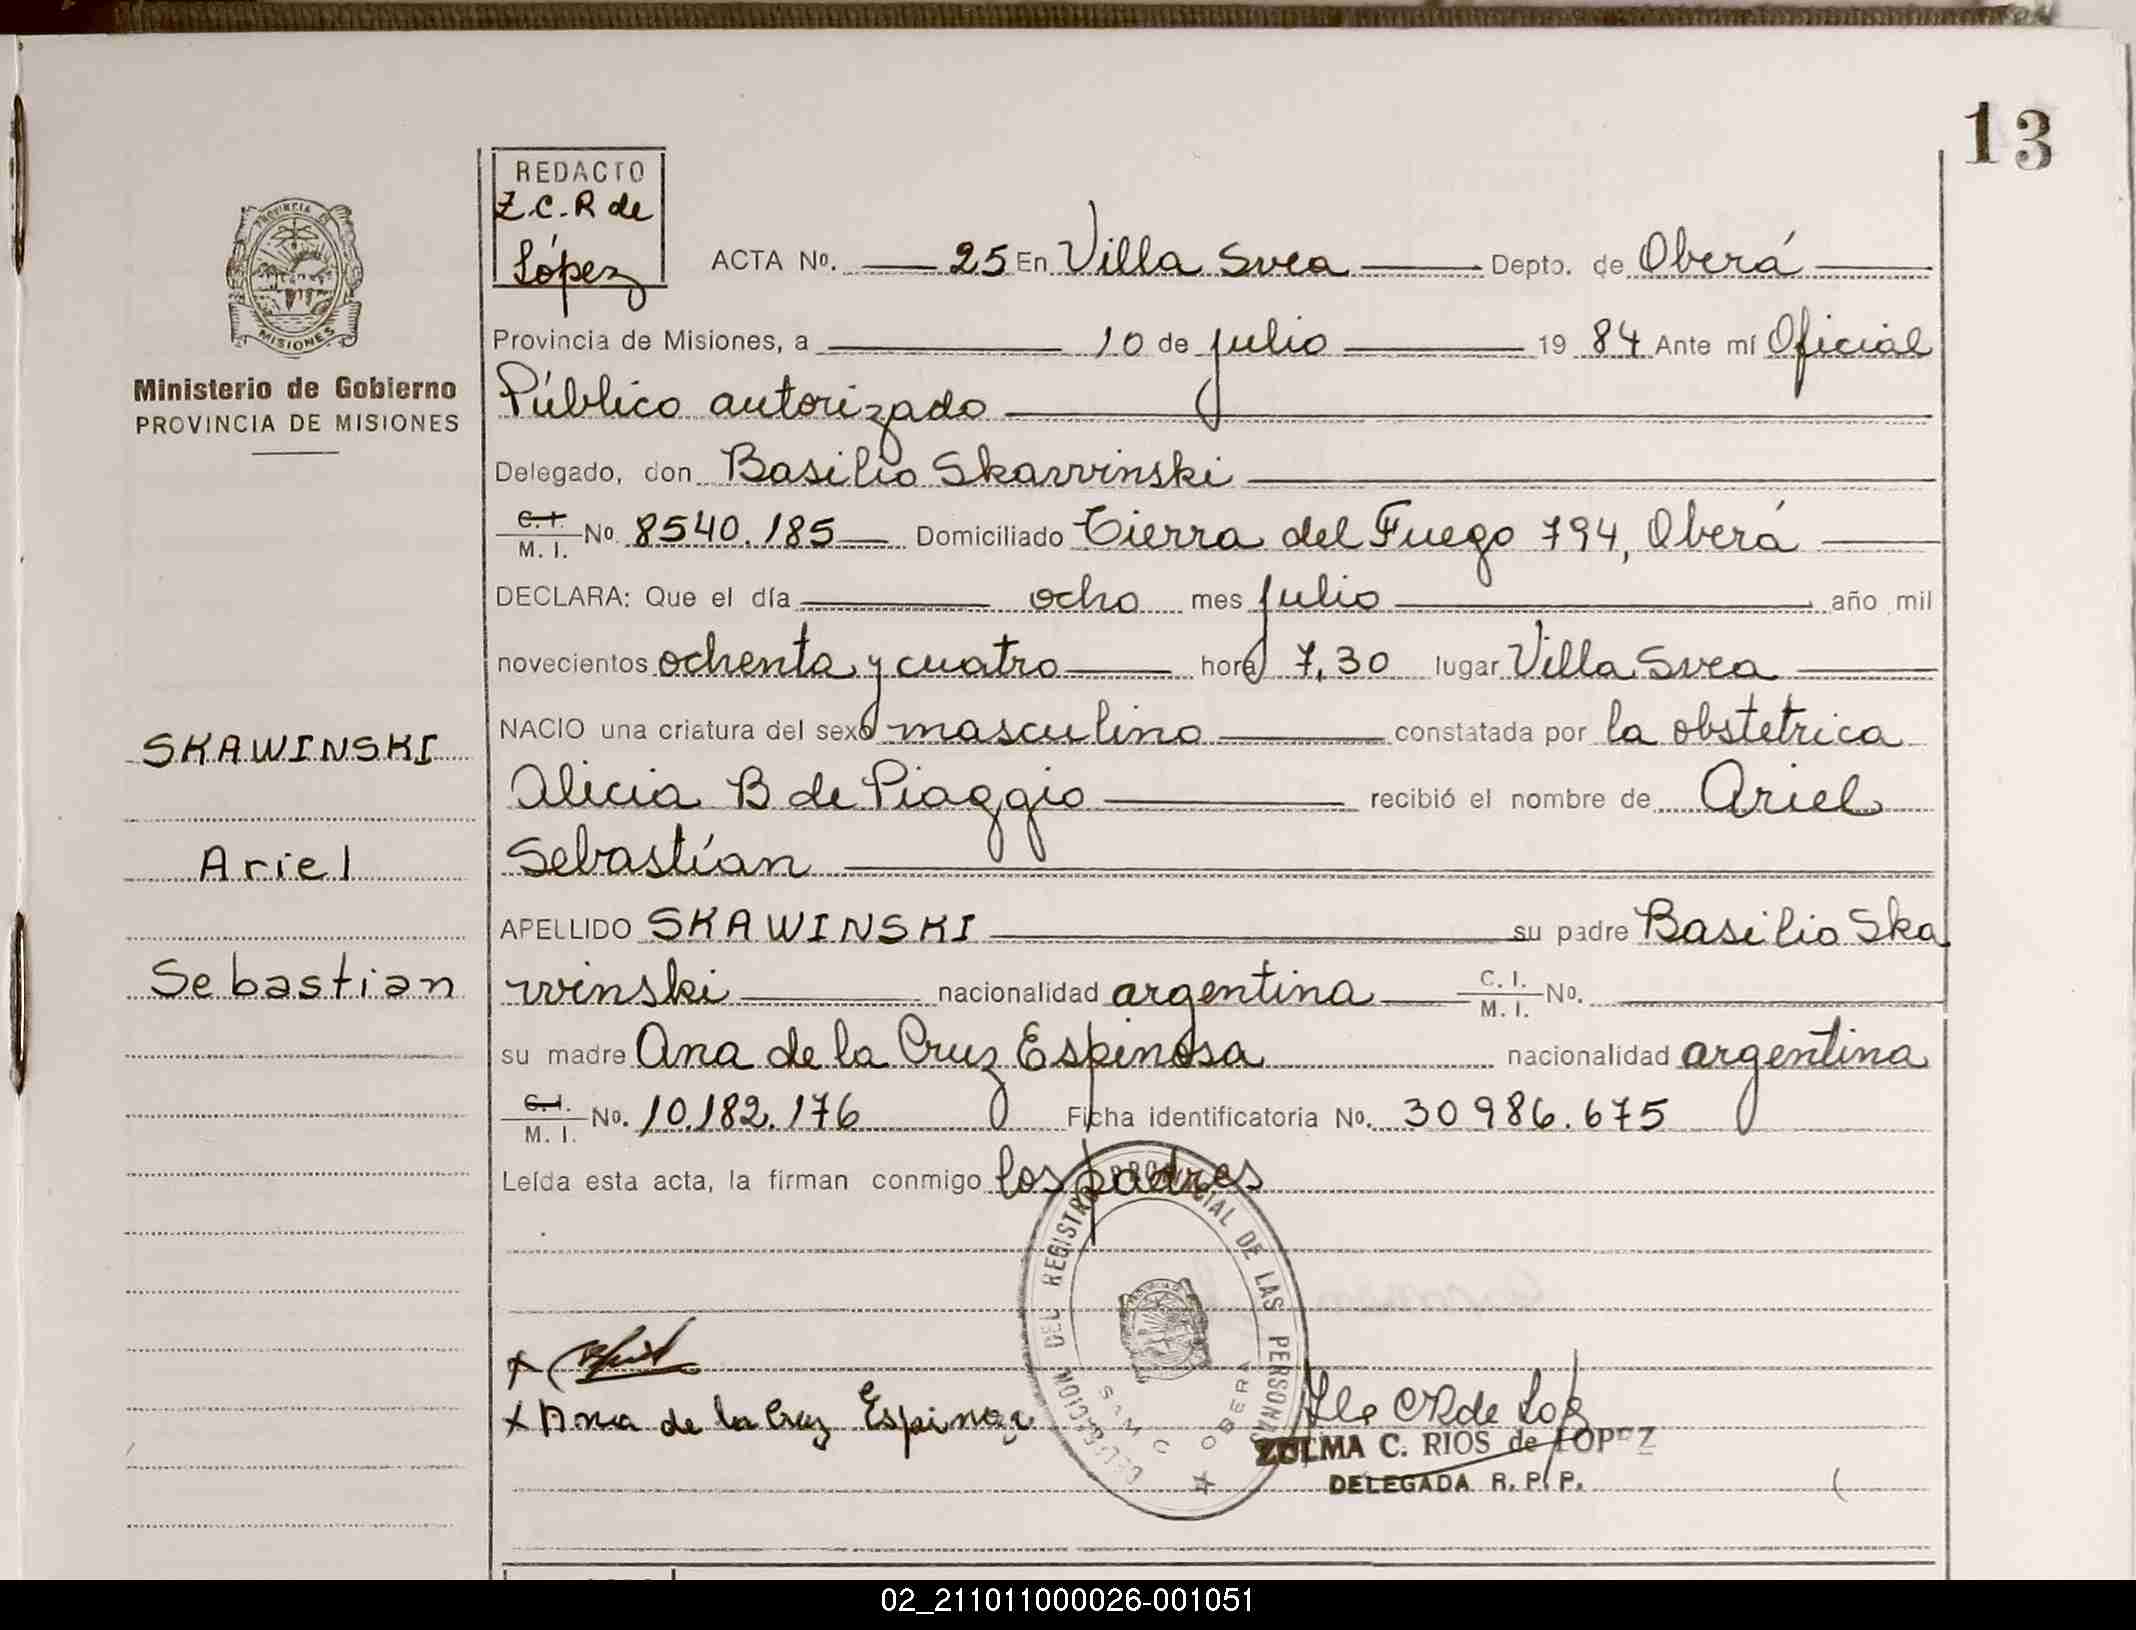 13
REDACTO
Z.C.R de
López
ACTA No. 25 En Villa Svea Depto. de Oberá
Provincia de Misiones, a 10 de julio 1984 Ante mí Oficial
Público autorizado
Delegado, don Basilio Skawinski
C.I. M.I. No. 8540.185 Domiciliado Tierra del Fuego 794, Oberá
DECLARA: Que el día ocho mes julio año mil
novecientos ochenta y cuatro hora 7,30 lugar Villa Svea
NACIO una criatura del sexo masculino constatada por la obstetrica
Alicia B de Piaggio recibió el nombre de Ariel
Sebastían
APELLIDO SKAWINSKI su padre Basilio Ska
winski nacionalidad argentina C.I. M.I. No.
su madre Ana de la Cruz Espinosa nacionalidad argentina
C.I. M.I. No. 10.182.176 Ficha identificatoria No. 30986.675
Leída esta acta, la firman conmigo los padres
PROVINCIA DE
MISIONES
Ministerio de Gobierno
PROVINCIA DE MISIONES
SKAWINSKI
Ariel
Sebastian
DELEGACION DEL REGISTRO PROVINCIAL DE LAS PERSONAS
OBERA
x
x Ana de la Cruz Espinoza
ZULMA C. RIOS de LOPEZ
DELEGADA R.P.P.
02_211011000026-001051